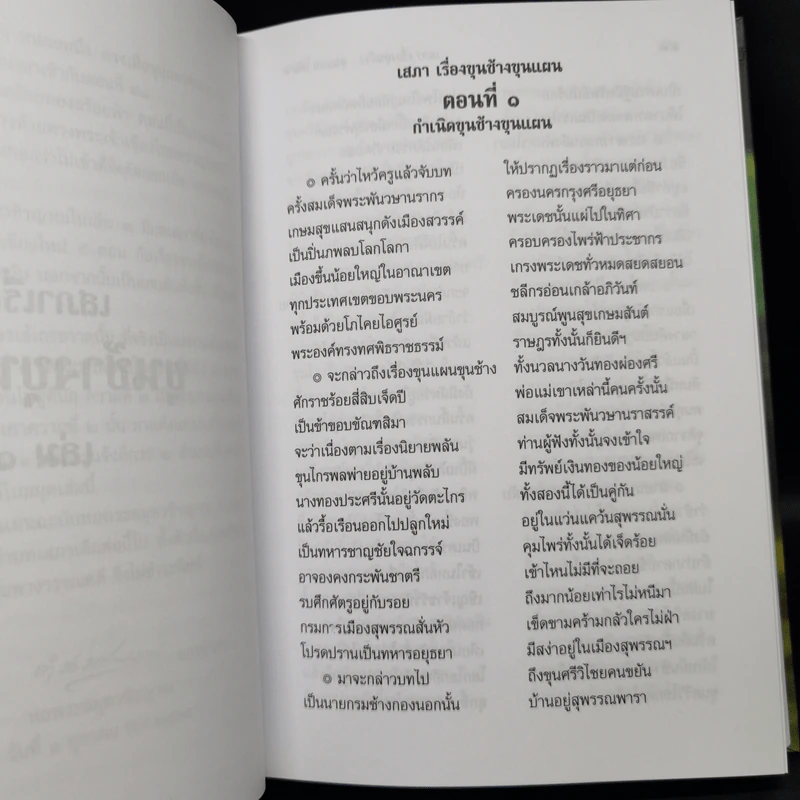 เสภา เรื่องขุนช้างขุนแผน
ตอนที่ ๑
กำเนิดขุนช้างขุนแผน
๏ ครั้นว่าไหว้ครูแล้วจับบท ให้ปรากฏเรื่องราวมาแต่ก่อน
ครั้งสมเด็จพระพันวษานรากร ครองนครกรุงศรีอยุธยา
เกษมสุขแสนสนุกดังเมืองสวรรค์ พระเดชนั้นแผ่ไปในทิศา
เป็นปิ่นภพลบโลกโลกา ครอบครองไพร่ฟ้าประชากร
เมืองขึ้นน้อยใหญ่ในอาณาเขต เกรงพระเดชทั่วหมดสยดสยอน
ทุกประเทศเขตขอบพระนคร ชลีกรอ่อนเกล้าอภิวันท์
พร้อมด้วยโภไคยไอศูรย์ สมบูรณ์พูนสุขเกษมสันต์
พระองค์ทรงทศพิธราชธรรม์ ราษฎรทั้งนั้นก็ยินดีฯ
๏ จะกล่าวถึงเรื่องขุนแผนขุนช้าง ทั้งนวลนางวันทองผ่องศรี
ศักราชร้อยสี่สิบเจ็ดปี พ่อแม่เขาเหล่านี้คนครั้งนั้น
เป็นข้าขอบขัณฑสิมา สมเด็จพระพันวษานราสรรค์
จะว่าเนื่องตามเรื่องนิยายพลัน ท่านผู้ฟังทั้งนั้นจงเข้าใจ
ขุนไกรพลพ่ายอยู่บ้านพลับ มีทรัพย์เงินทองของน้อยใหญ่
นางทองประศรีนั้นอยู่วัดตะไกร ทั้งสองนี้ได้เป็นคู่กัน
แล้วรื้อเรือนออกไปปลูกใหม่ อยู่ในแว่นแคว้นสุพรรณนั่น
เป็นทหารชาญชัยใจฉกรรจ์ คุมไพร่ทั้งนั้นได้เจ็ดร้อย
อาจองคงกระพันชาตรี เข้าไหนไม่มีที่จะถอย
รบศึกศัตรูอยู่กับรอย ถึงมากน้อยเท่าไรไม่หนีมา
กรมการเมืองสุพรรณสั่นหัว เข็ดขามคร้ามกลัวใครไม่ฝ่า
โปรดปรานเป็นทหารอยุธยา มีสง่าอยู่ในเมืองสุพรรณฯ
๏ มาจะกล่าวบทไป ถึงขุนศรีวิไชยคนขยัน
เป็นนายกรมช้างกองนอกนั้น บ้านอยู่สุพรรณพารา